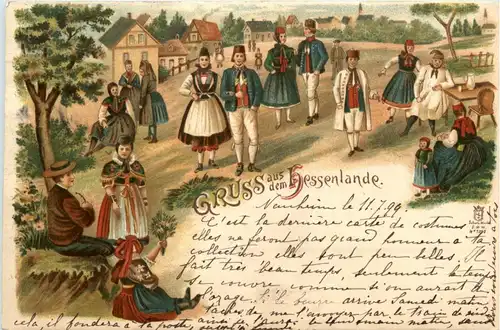 GRUSS aus dem Hessenlande.
Nauheim le 11.7.99.
C'est la dernière carte de costumes
elles ne feront pas grand honneur à ta
collection elles sont peu belles. Il
fait très beau temps, seulement le temps
se couvre comme si on aurait de
l'orage. le beurre arrive Samedi matin
de me l'envoyer par le train de
cela, il fondera à la poste,